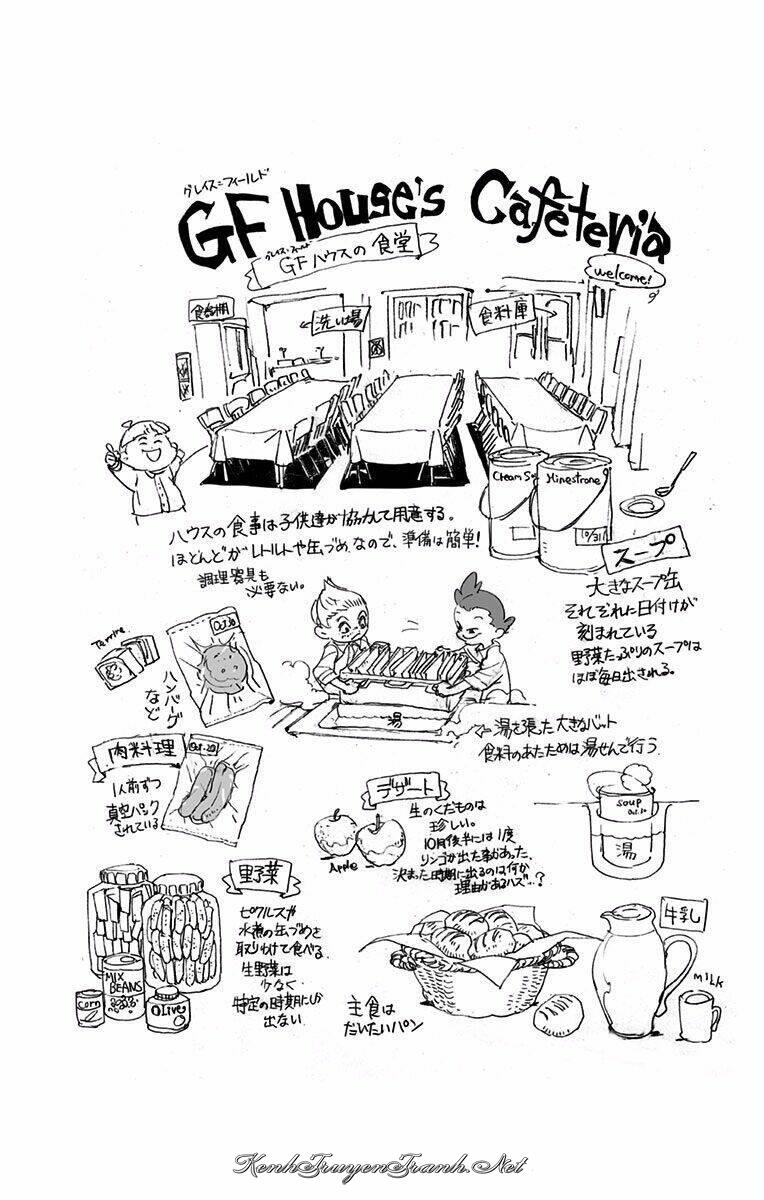 グレイス＝フィールド
GF House's Cafeteria
グレイス＝フィールド
GFハウスの食堂
welcome!
食器棚
←洗い場
食料庫
Minestrone
10/31
ハウスの食事は子供達が協力して用意する。
ほとんどがレトルトや缶づめなので、準備は簡単!
調理器具も
必要ない。
スープ
大きなスープ缶
それぞれに日付けが
刻まれている
野菜たっぷりのスープは
ほぼ毎日出される。
Terrine
ハンバーグ
など
湯
←湯を張った大きなバット
食料のあたためは湯せんで行う
肉料理
1人前ずつ
真空パック
されている
デザート
生のくだものは
珍しい。
10月後半には1度
リンゴが出た事があった、
決まった時期に出るのは何か
理由があるハズ…?
Apple
soup
湯
野菜
ピクルスや
水煮の缶づめを
取りわけて食べる
生野菜は
少なく
特定の時期にしか
出ない
MIX
BEANS
Corn
Olive
主食は
だいたいパン
牛乳
MILK
KenhTruyenTranh.Net